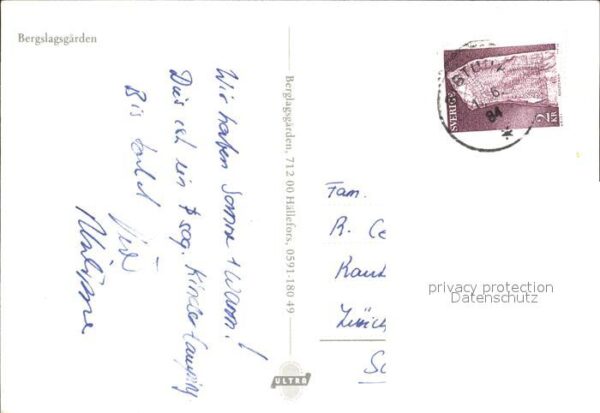 Bergslagsgården
Wir haben Sonne + Warm!
Dies ist ein sog. Kinder Camping.
Bis bald
Berglagsgården, 712 00 Hällefors, 0591-180 49
ULTRA
SVERIGE
2 KR
6
84
Fam.
R. Ce
Zürich
privacy protection
Datenschutz